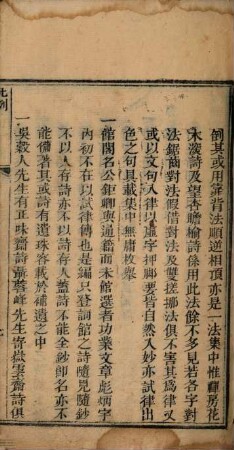 倒其或用辭背法順逆相頂亦是一法集中惟輝房花
水淺詩及望杏瞻榆詩係用此法餘不多見若各字對
法鋸齒對法假借對法及雙搓挪法俱不害其為律又
或以文句入律以虛字押腳要皆自然入妙亦試律出
色之句具載集中無庸枚舉
一館閣名公鉅卿與通籍而未館選者功業文章彪炳宇
內初不在以試律傳也是編只登詞館之詩隨見隨鈔
不以人存詩亦不以詩存人蓋詩不能全鈔即名亦不
能備著其或詩有遺珠容載於補遺之中
一吳穀人先生有正味齋詩蕭 峰先生 雲齋詩俱